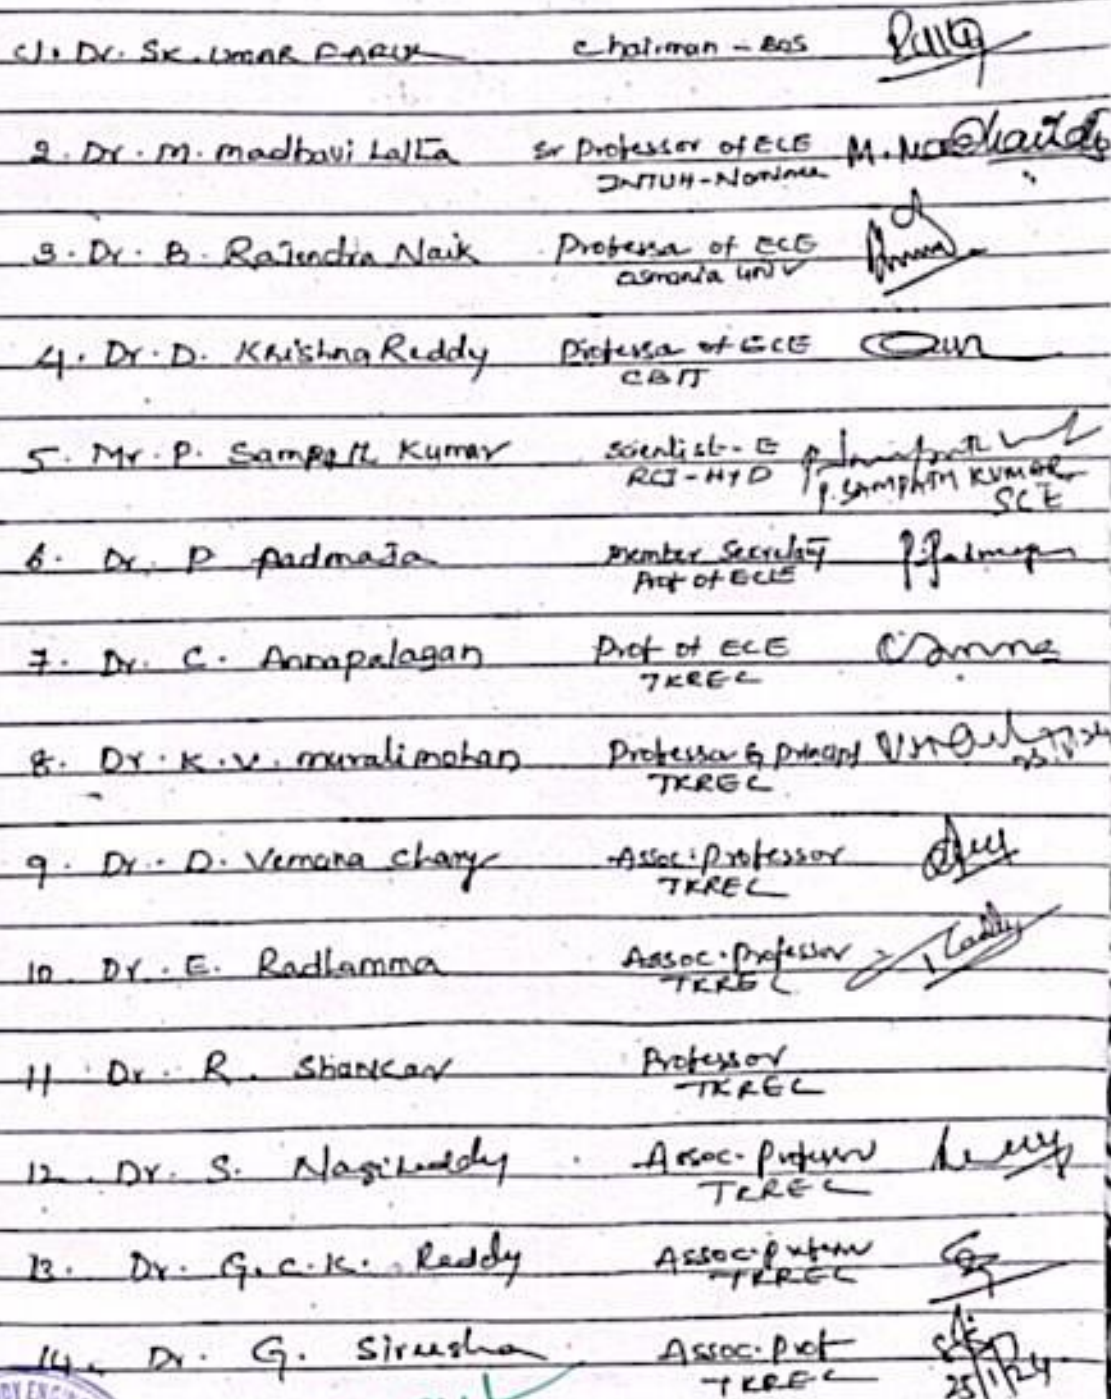 1. Dr. SK. UMAR FARUK Chairman - BOS
2. Dr. M. madhavi Lalita Sr Professor of ECE M. Madhavi
JNTUH-Nominee
3. Dr. B. Rajendra Naik Professor of ECE
Osmania Univ
4. Dr. D. Krishna Reddy Professor of ECE
CBIT
5. Mr. P. Sampath Kumar Scientist-E
RCI-HYD P. SAMPATH KUMAR
SCE
6. Dr. P Padmaja Member Secretary P. Padmaja
Prof of ECE
7. Dr. C. Annapalagan Prof of ECE
TKREC
8. Dr. K. V. muralimohan Professor & Principal
TKREC
9. Dr. D. Vemana Chary Assoc. Professor
TKREC
10. Dr. E. Radhamma Assoc. Professor
TKREC
11 Dr. R. Shankar Professor
TKREC
12. Dr. S. Nagireddy Assoc. Professor
TKREC
13. Dr. G.C.K. Reddy Assoc. Professor
TKREC
14. Dr. G. Sireesha Assoc. Prof
TKREC 25/1/24